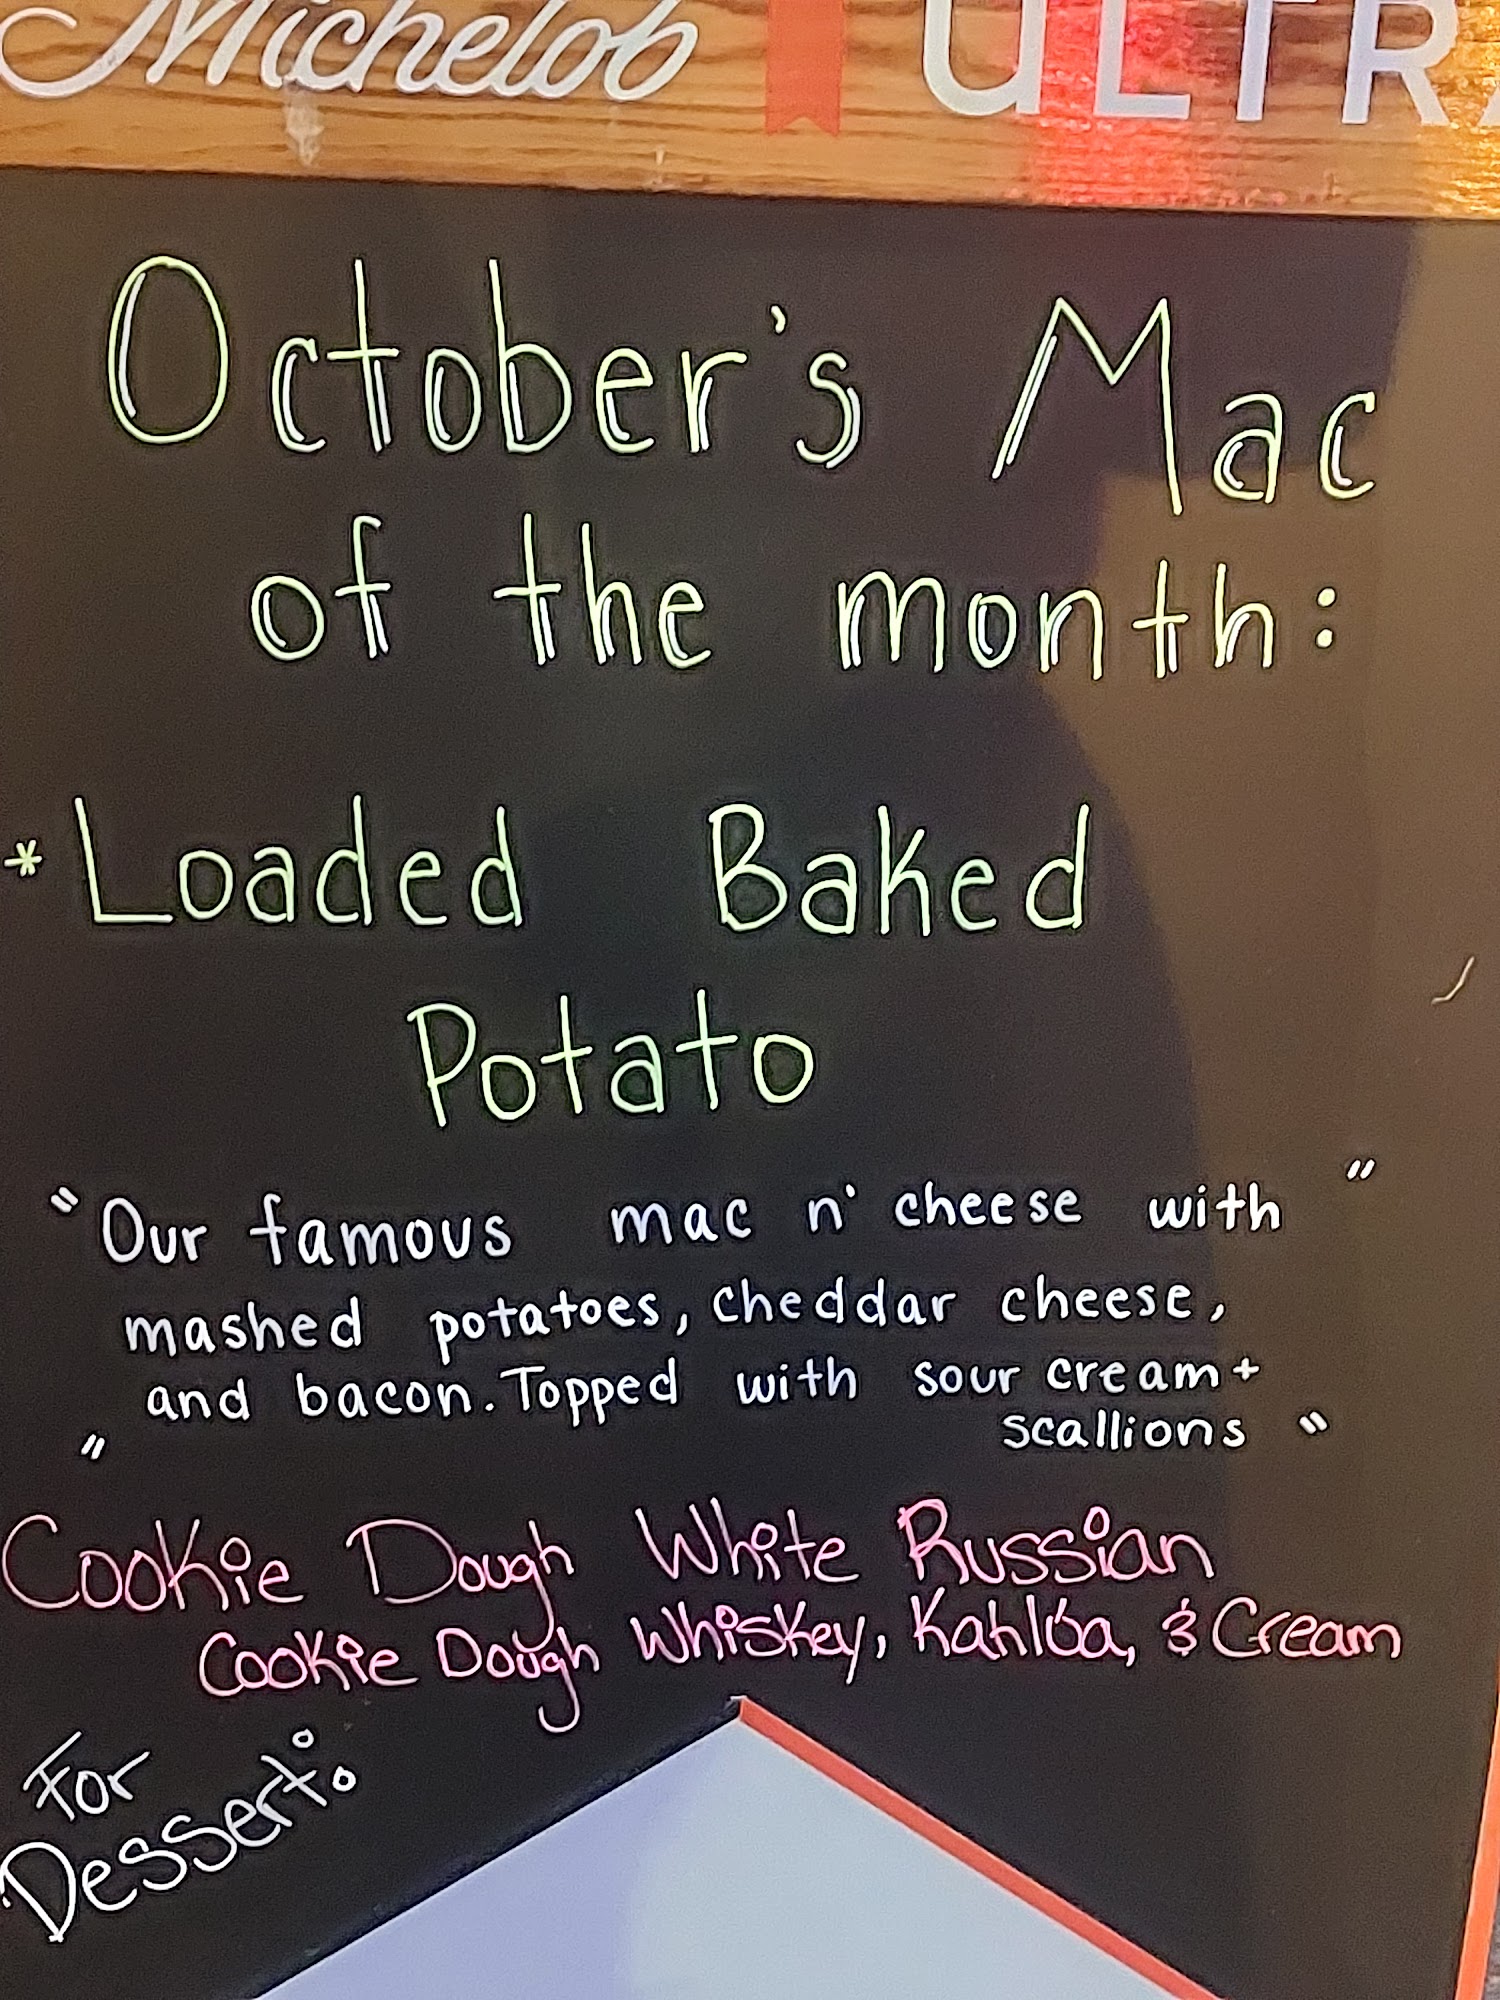 Michelob ULTRA
October's Mac
of the month:
*Loaded Baked
Potato
"Our famous mac n' cheese with "
mashed potatoes, cheddar cheese,
and bacon. Topped with sour cream +
" scallions "
Cookie Dough White Russian
Cookie Dough Whiskey, Kahlúa, & Cream
For
Dessert: